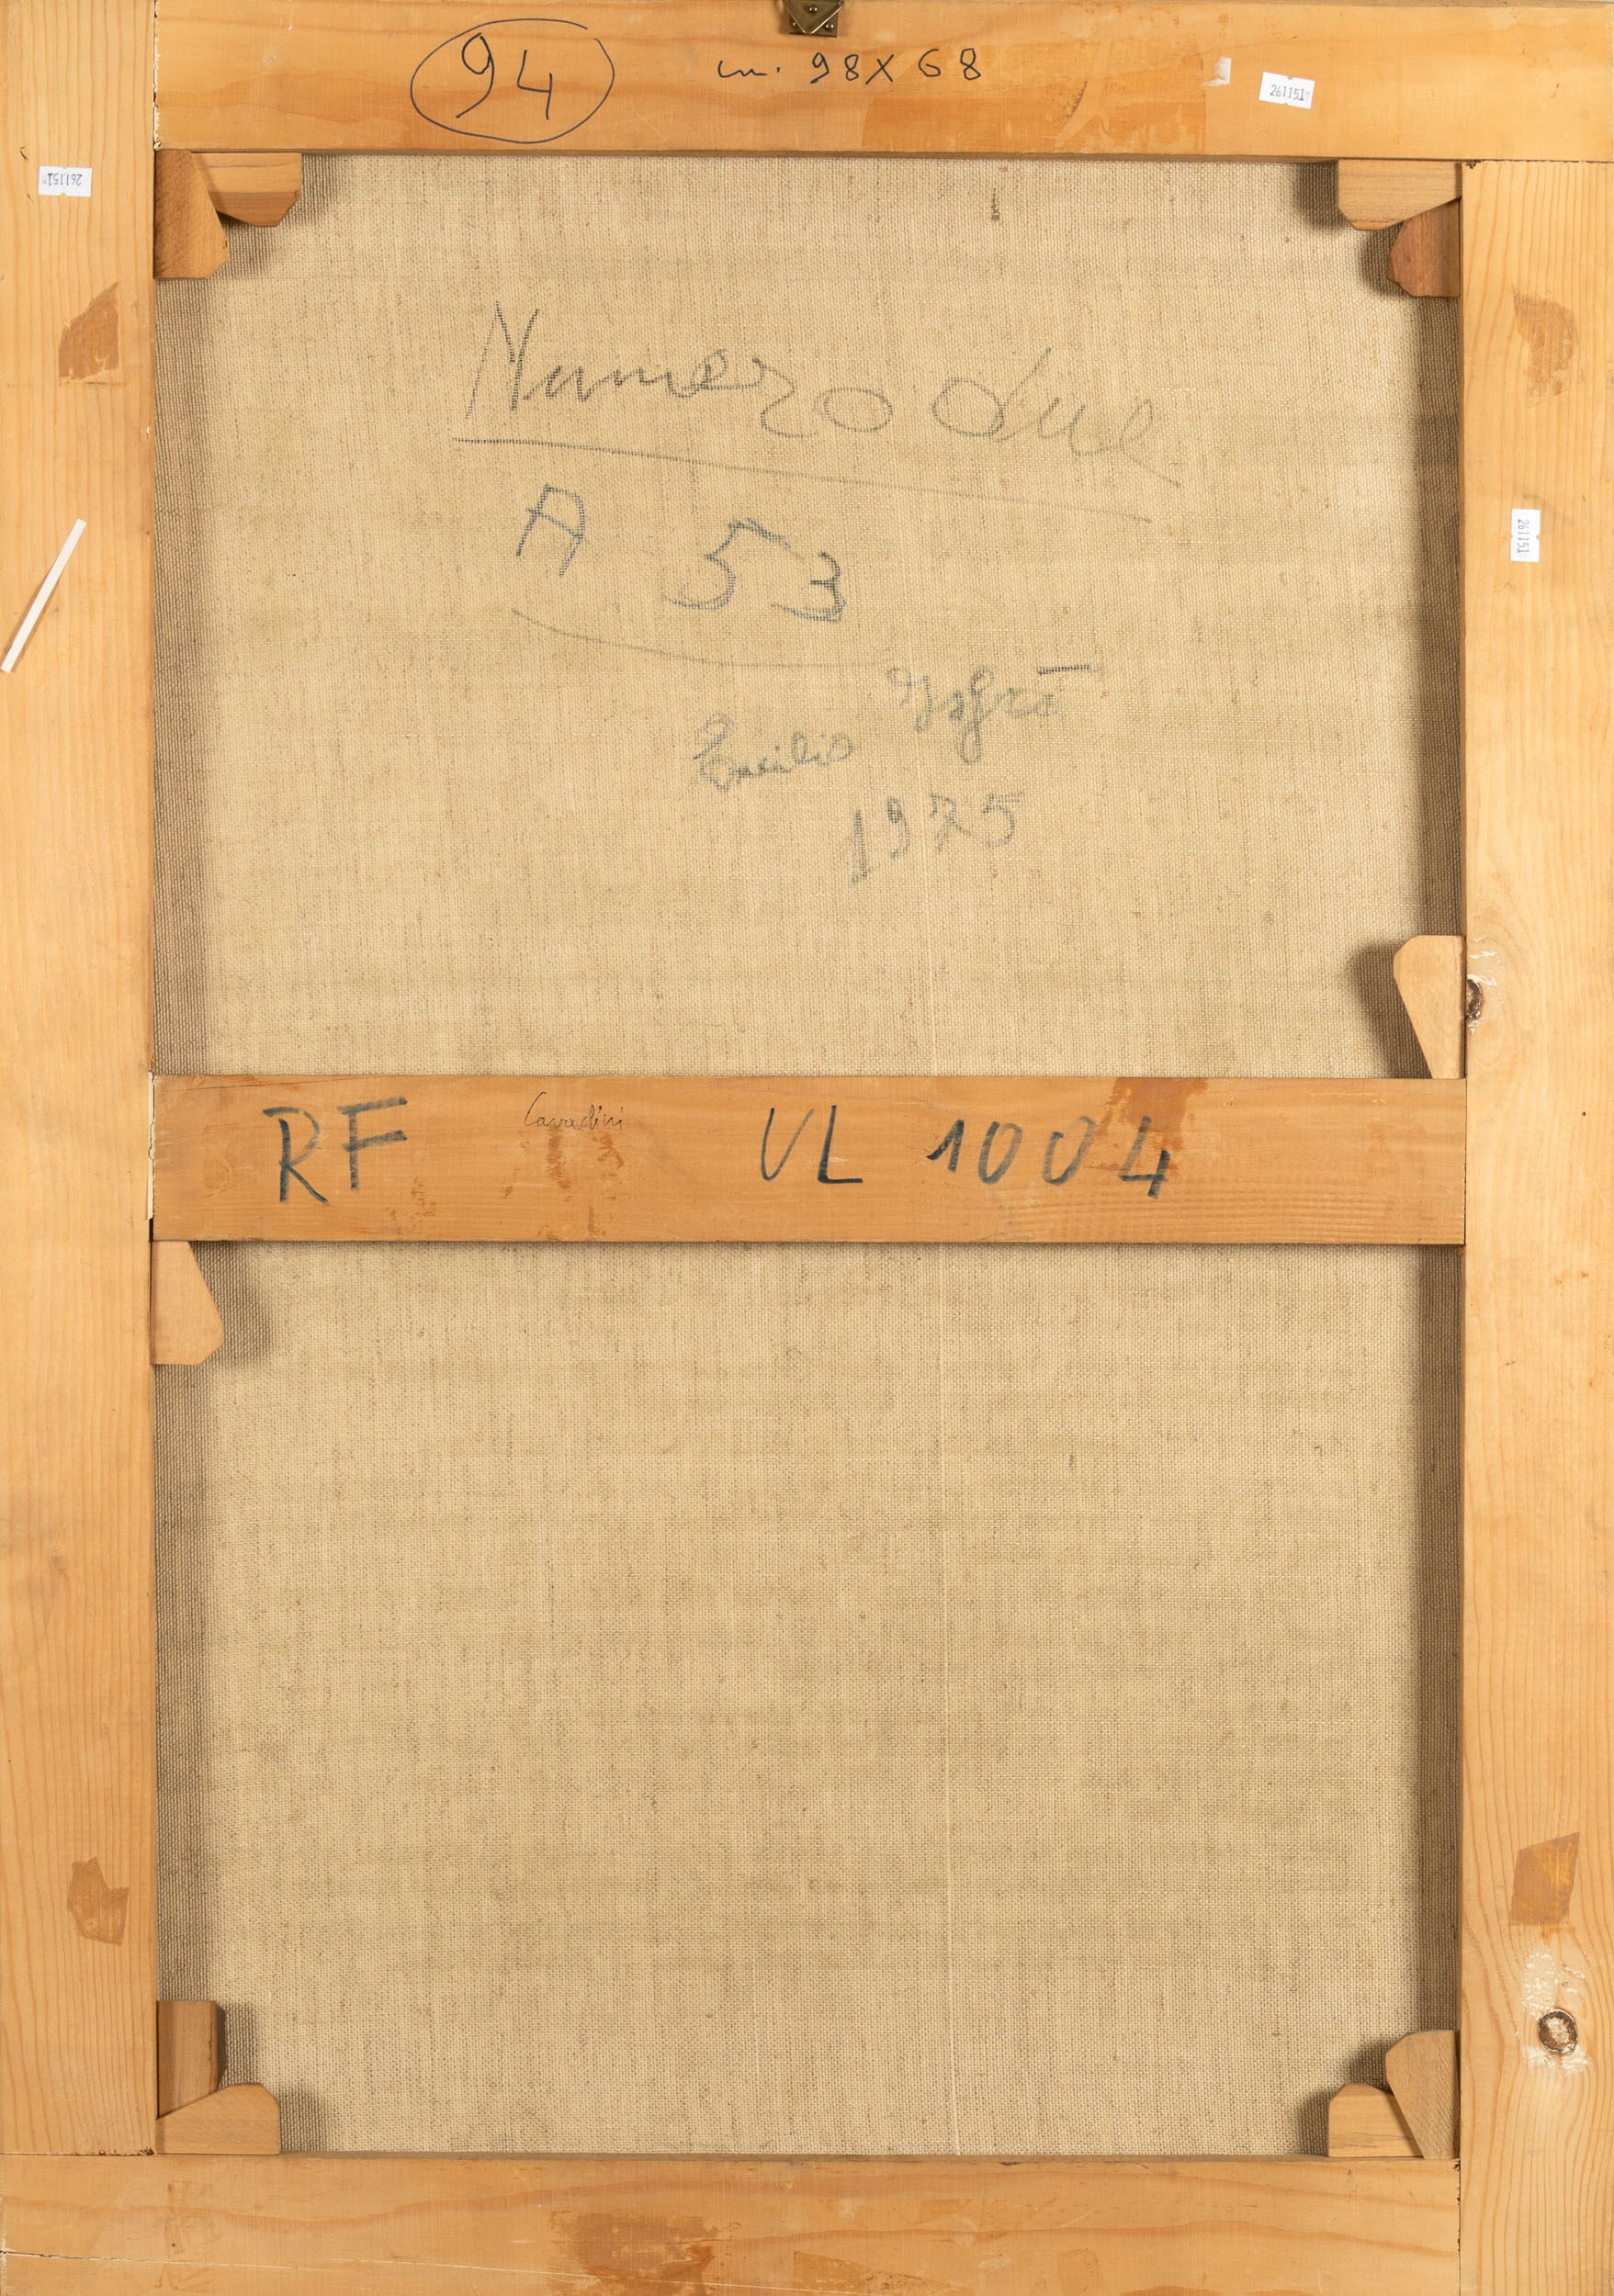 94
cm. 98X68
261151
261151
Numero due
A 53
261151
Emilio Isgrò
1975
RF Cavadini VL 1004